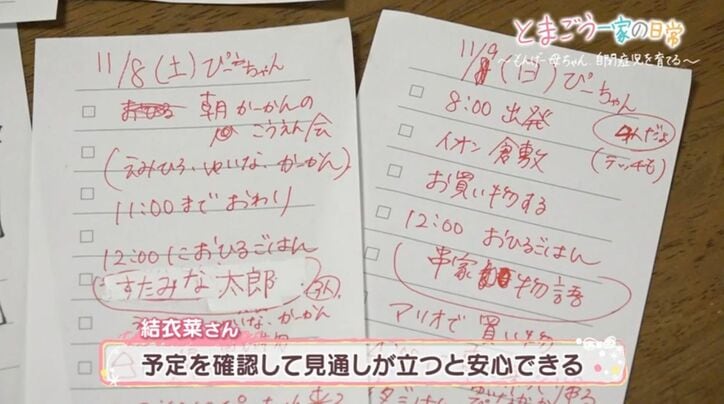 とまごう一家の日常
〜もんげー母ちゃん、自閉症児を育てる〜
11/8(土)ぴーちゃん
朝かーかんの
こうえん会
(えみひろ、ゆいな、かーかん)
11:00までおわり
12:00におひるごはん
すたみな太郎
ゆいな、かーかん
11/9(日)ぴーちゃん
8:00 出発
4人だよ
イオン倉敷
お買い物する
12:00 おひるごはん
串家物語
マリオで買い物
結衣菜さん
予定を確認して見通しが立つと安心できる